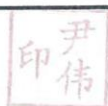 尹伟
印